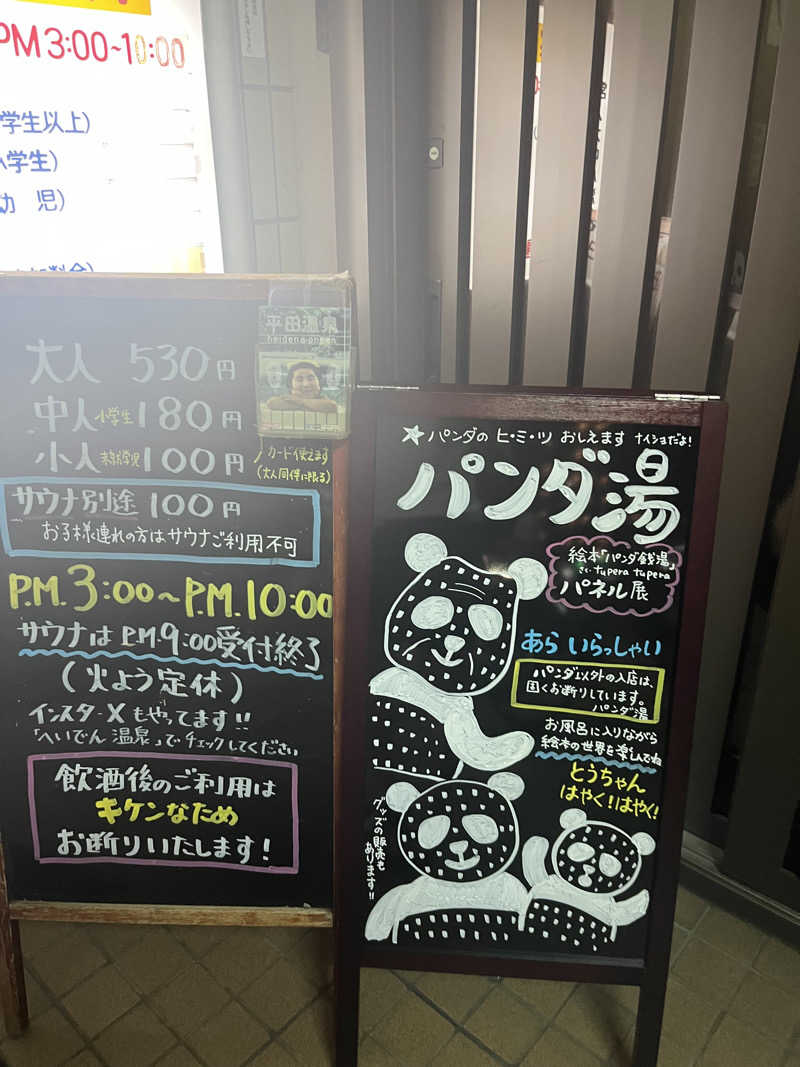 PM3:00~10:00
学生以上)
学生)
幼 児)
平田温泉
heiden・onsen
大人 530円
中人 小学生 180円
小人 未就学児 100円
カード使えます
(大人同伴に限る)
サウナ別途 100円
お子様連れの方はサウナご利用不可
P.M.3:00~P.M.10:00
サウナはPM9:00受付終了
(火よう定休)
インスタ・Xもやってます!!
「へいでん温泉」でチェックしてください
飲酒後のご利用は
キケンなため
お断りいたします!
☆パンダのヒ・ミ・ツ おしえます ナイショだよ!
パンダ湯
絵本「パンダ銭湯」
さく・tupera tupera
パネル展
あら いらっしゃい
パンダ以外の入店は、
固くお断りしています。
パンダ湯
お風呂に入りながら
絵本の世界を楽しんでね
とうちゃん
はやく!はやく!
グッズの販売も
あります!!